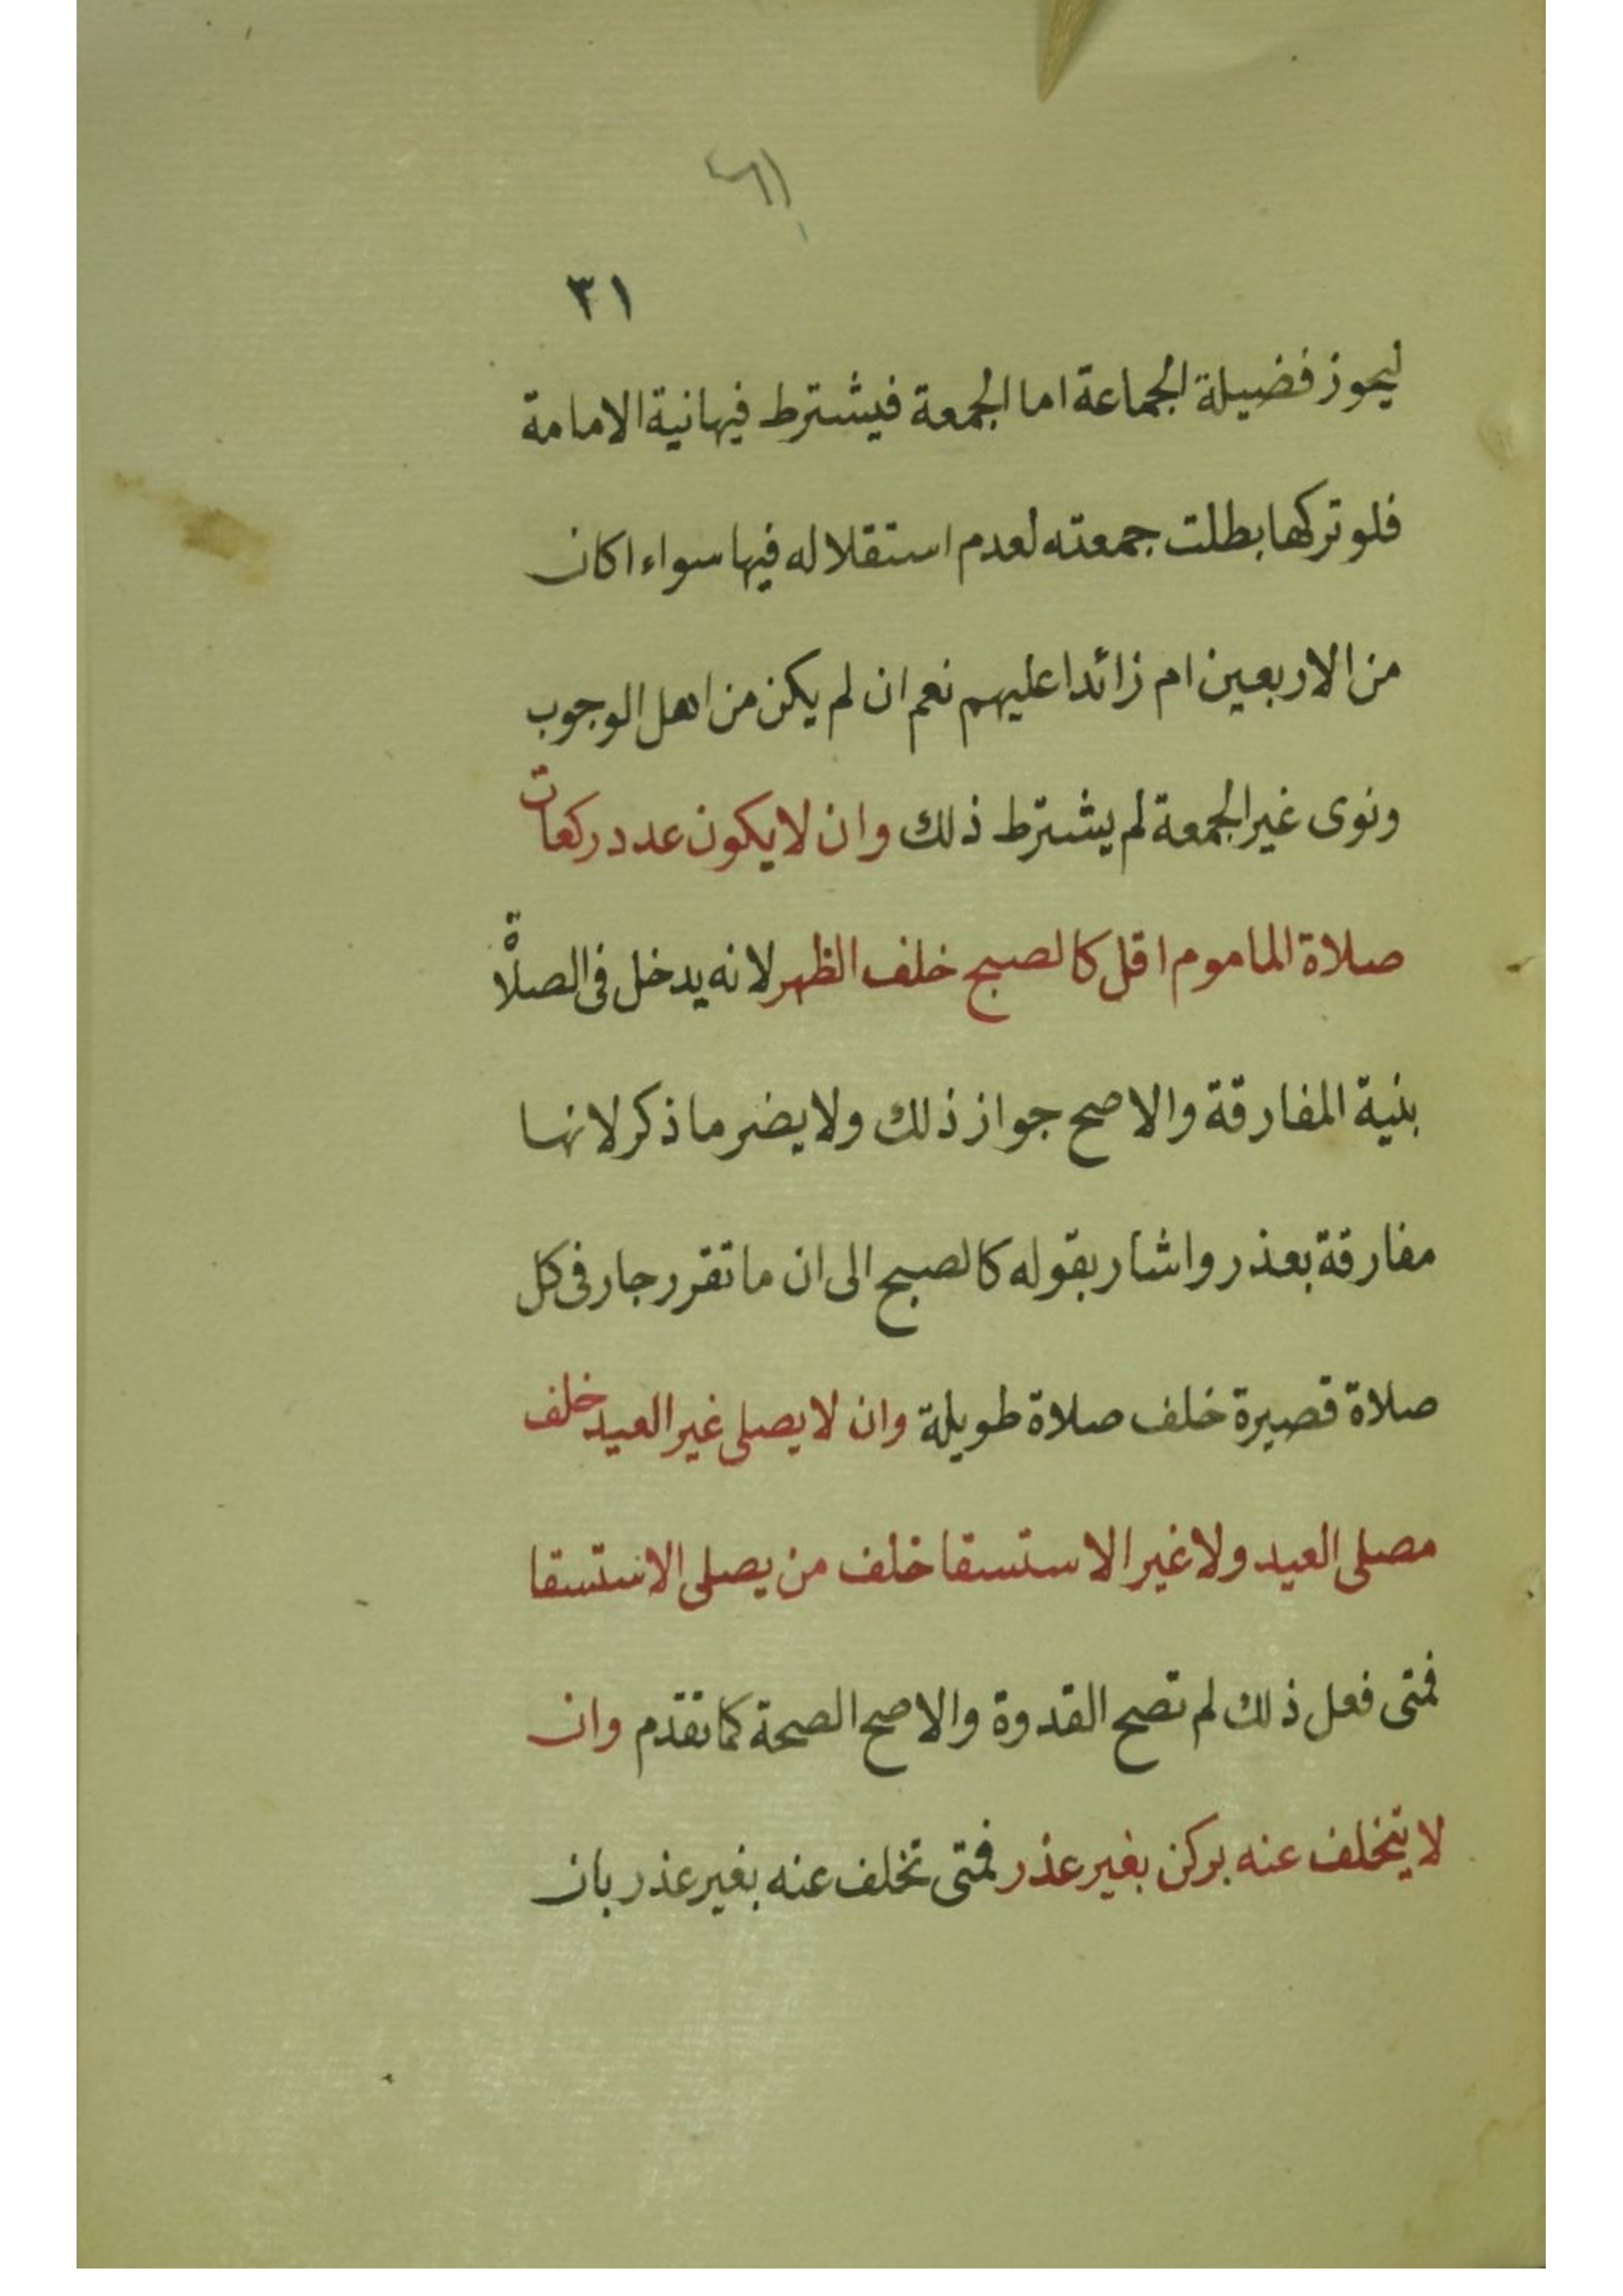 ٣١
ليحوز فضيلة الجماعة اما الجمعة فيشترط فيها نية الامامة
فلو تركها بطلت جمعته لعدم استقلاله فيها سواء اكان
من الاربعين ام زائدا عليهم نعم ان لم يكن من اهل الوجوب
ونوى غير الجمعة لم يشترط ذلك وان لا يكون عدد ركعات
صلاة الماموم اقل كالصبح خلف الظهر لانه يدخل فى الصلاة
بنية المفارقة والاصح جواز ذلك ولا يضر ما ذكر لانها
مفارقة بعذر واشار بقوله كالصبح الى ان ما تقرر جار فى كل
صلاة قصيرة خلف صلاة طويلة وان لا يصلى غير العيد خلف
مصلى العيد ولا غير الاستسقا خلف من يصلى الاستسقا
فمتى فعل ذلك لم تصح القدوة والاصح الصحة كما تقدم وان
لا يتخلف عنه بركن بغير عذر فمتى تخلف عنه بغير عذر بان